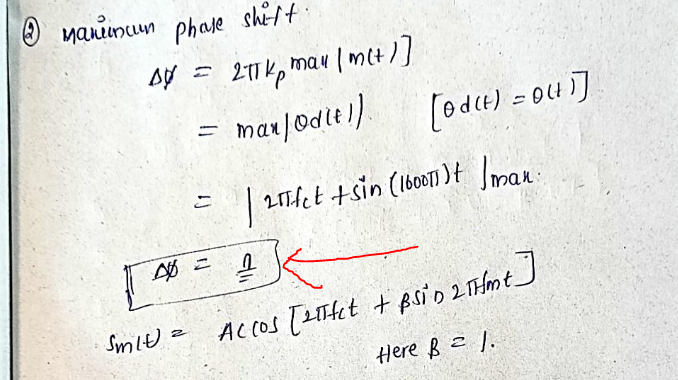 ② Maximum phase shift.
Δφ = 2πkₚ max | m(t) ]
= max | θd(t) | [θd(t) = θ(t)]
= | 2πfct + sin (1600π)t |max.
Δφ =
Sm(t) = AC cos [2πfct + β sin 2πfmt]
Here β = 1.